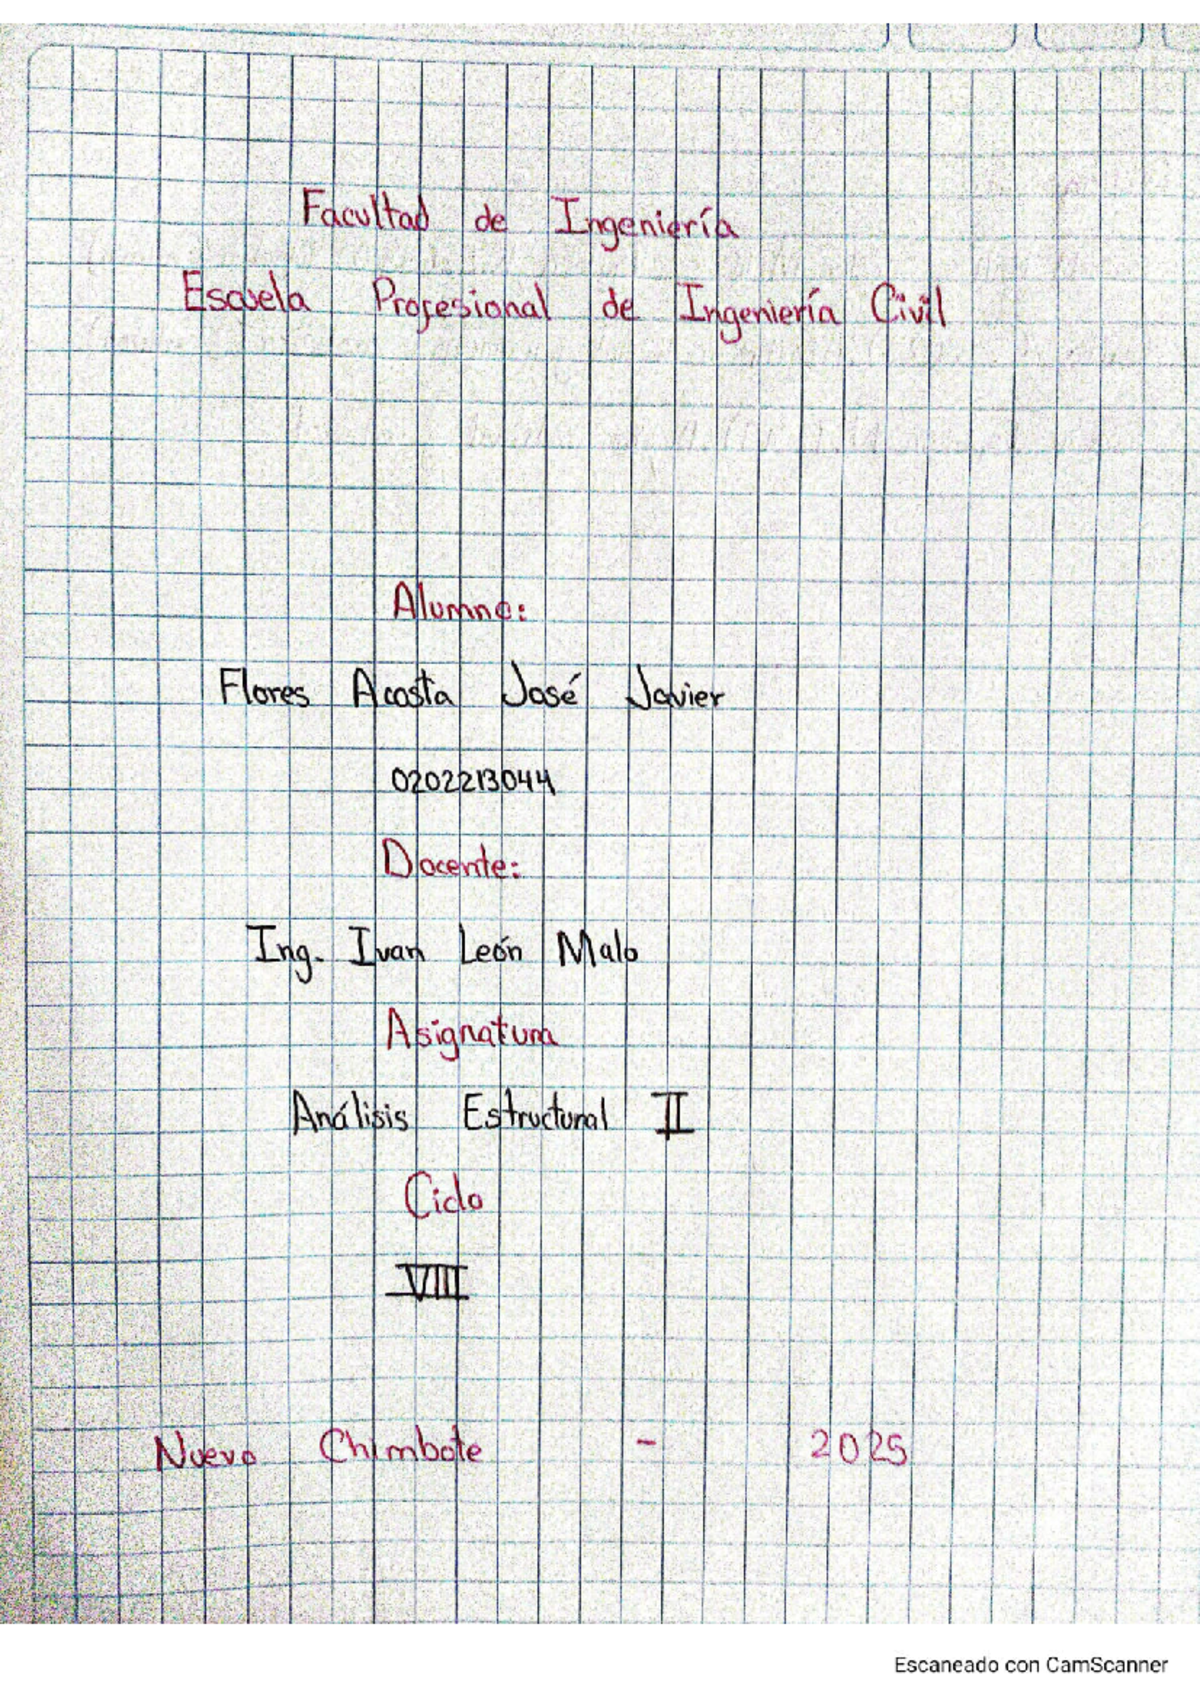 Facultad de Ingeniería
Escuela Profesional de Ingeniería Civil
Alumno:
Flores Acosta José Javier
0202213044
Docente:
Ing. Ivan León Malo
Asignatura
Análisis Estructural II
Ciclo
VIII
Nuevo Chimbote - 2025
Escaneado con CamScanner